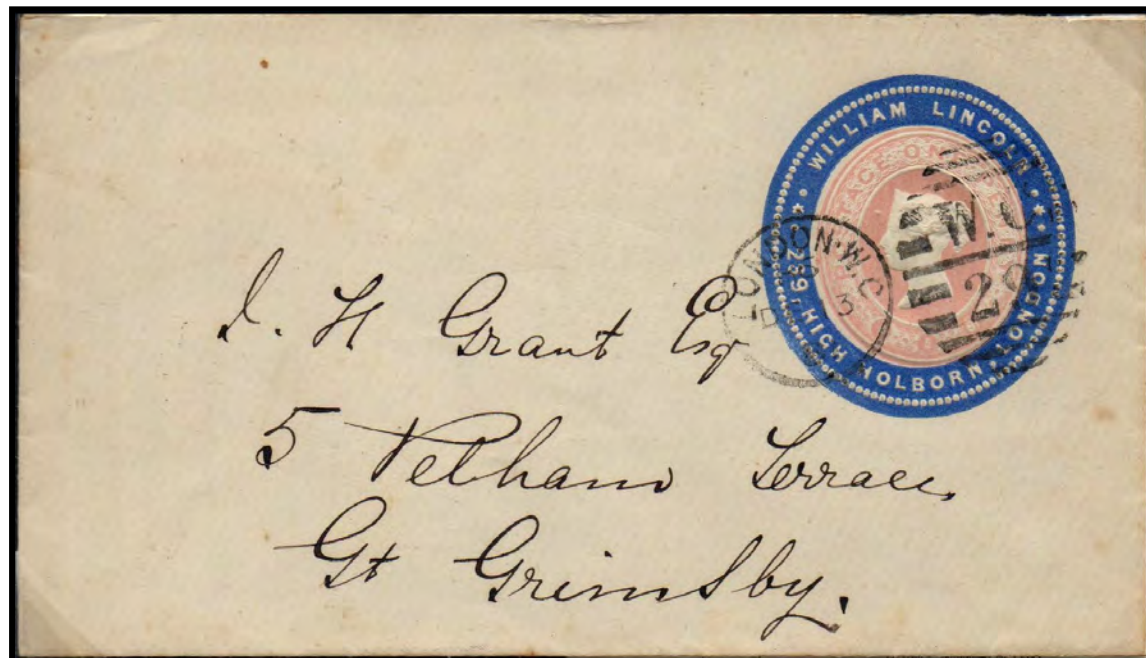 WILLIAM LINCOLN
239, HIGH HOLBORN, LONDON
POSTAGE ON
LONDON·W.C
3
W.C
29
I. H Grant Esq
5 Pelham Terrace,
Gt Grimsby.